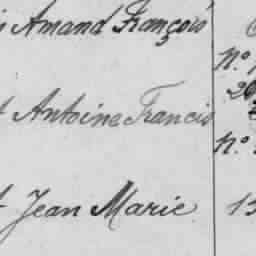 Amand François
Nº
Antoine Francis
Nº
Jean Marie 13